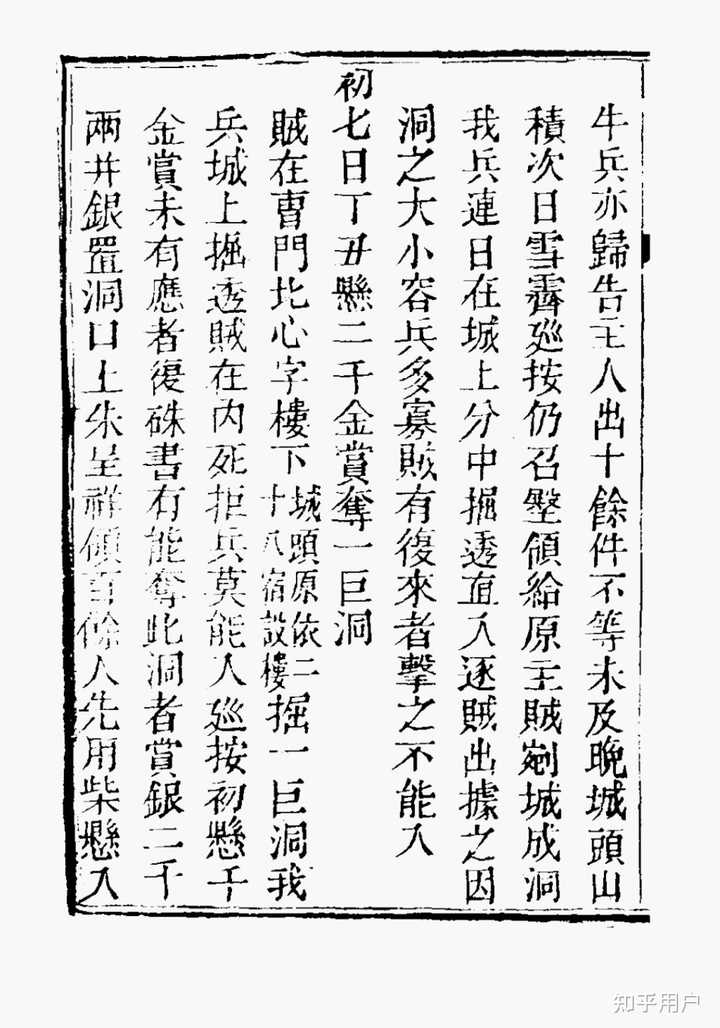 牛兵亦歸告主人出十餘件不等未及晚城頭山
積次日雪霽廵按仍召壑領給原主賊剜城成洞
我兵連日在城上分中掘透直入逐賊出據之因
洞之大小容兵多寡賊有復來者擊之不能入
初七日丁丑懸二千金賞奪一巨洞
賊在曹門北心字樓下城頭原依二十八宿設樓掘一巨洞我
兵城上掘透賊在内死拒兵莫能入廵按初懸千
金賞未有應者復硃書有能奪此洞者賞銀二千
兩幷銀置洞口上朱呈祥領百餘人先用柴懸入
知乎用户